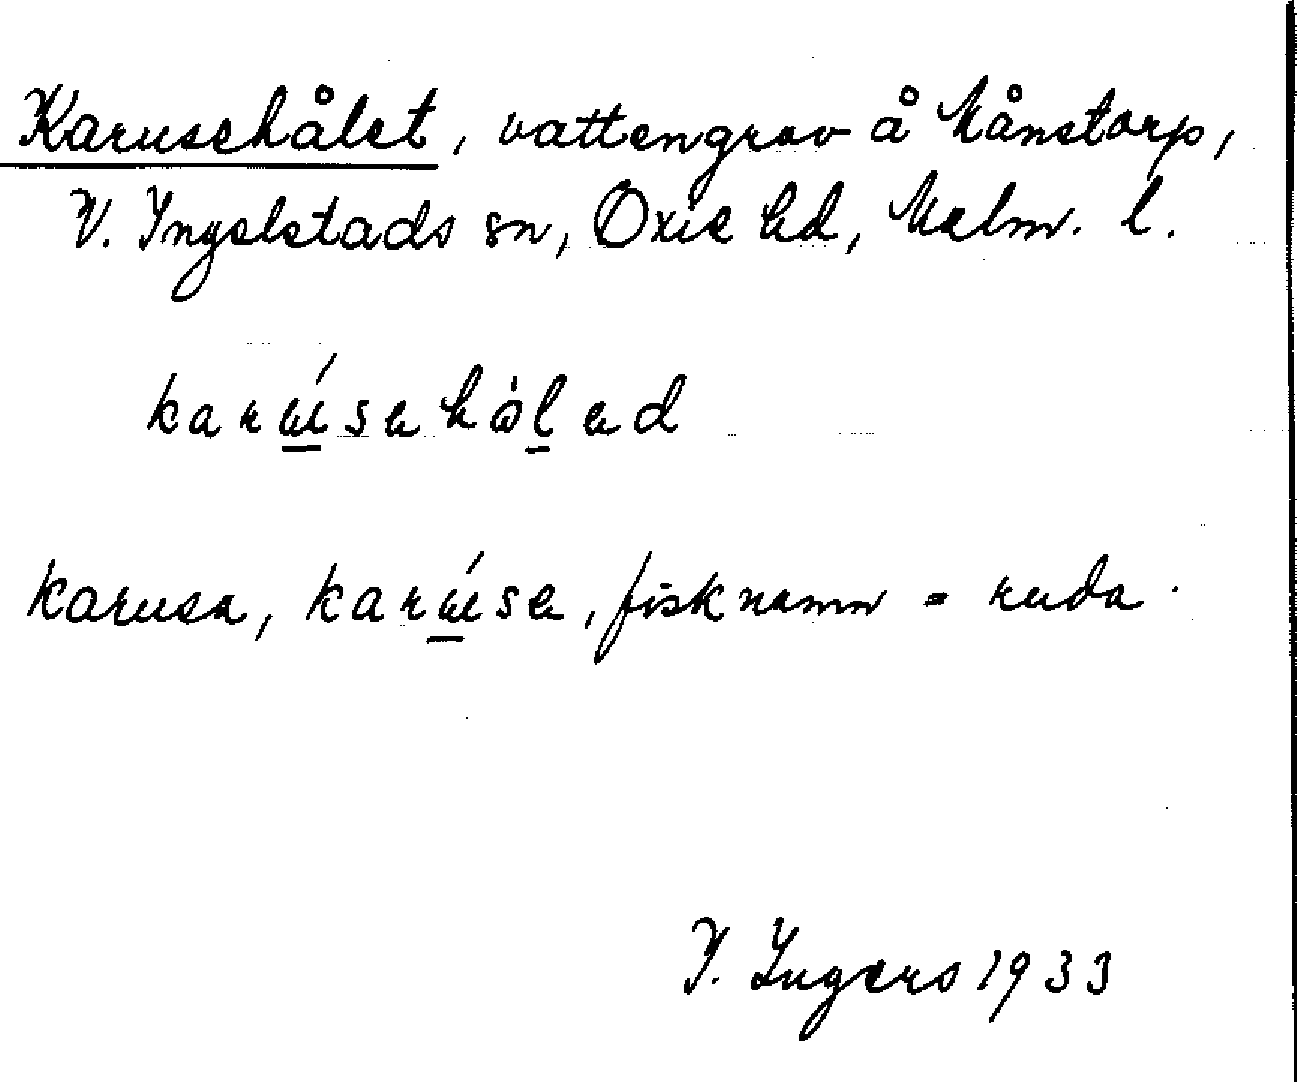 Karusehålet, vattengrav å Månstorp,
V. Ingelstads sn, Oxie hd, Malm. l.
karúsahålad
karusa, karúsa, fisknamn = ruda.
I. Ingers 1933